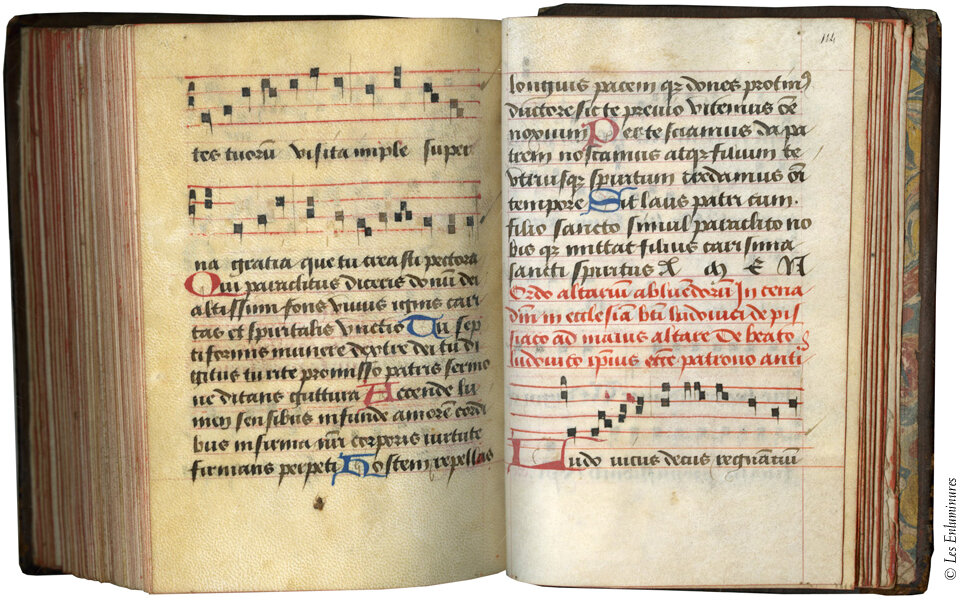 tes tuorū visita imple super
na gratia que tu creasti pectora
Qui paraclitus diceris donū dei
altissimi fons vivus ignis cari
tas et spiritalis vnctio Tu sep
tiformis munere dextre dei tu di
gitus tu rite promisso patris sermo
ne ditans guttura Accende lu
men sensibus infunde amorē cordi
bus infirma nr̄i corporis virtute
firmans perpeti Hostem repellas
114
longius pacem qz dones protinꝰ
ductore sic te previo vitemus oē
noxium Per te sciamus da pa
trem noscamus atqz filium te
vtriusqz spiritum credamus oī
tempore Sit laus patri cum
filio sancto simul paraclito no
bis qz mittat filius carisma
sancti spiritus A M E N
Ordo altariū abluendorū In cena
dn̄i in ecclesia bt̄i ludovici de pis
siaco ad maius altare De beato
ludovico ip̄ius ecc̄e patrono anti
Ludovicus decus regnantiū
© Les Enluminures